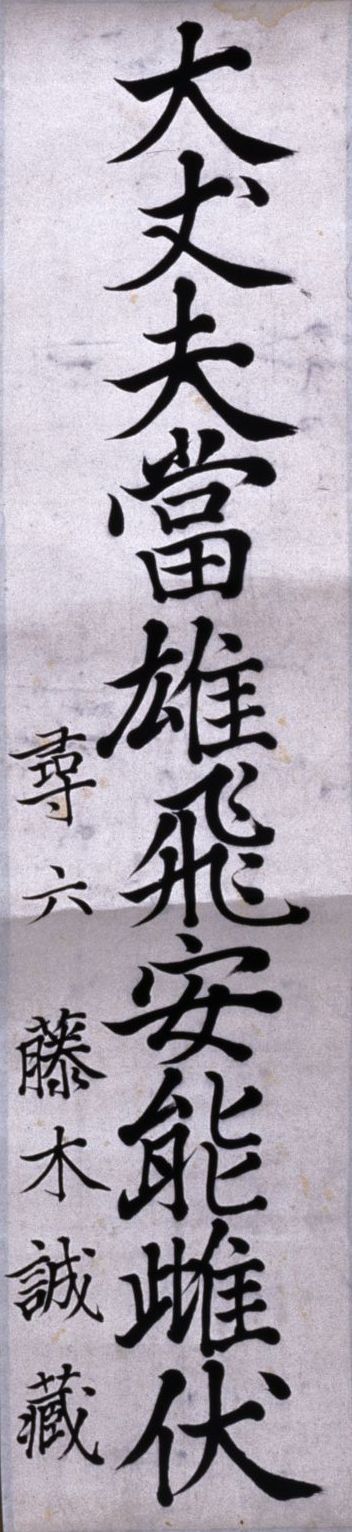 大丈夫當雄飛安能雌伏
尋六 藤木誠藏